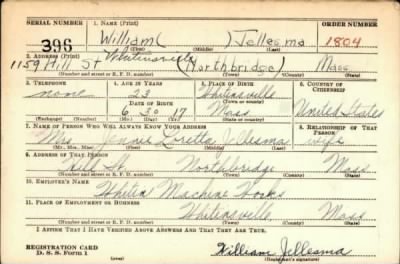 SERIAL NUMBER 1. NAME (Print) ORDER NUMBER
396 William ( ) Jellesma 1804
(First) (Middle) (Last)
2. ADDRESS (Print) Whitinsville
1159 Hill St (Northbridge) Mass
(Number and street or R. F. D. number) (Town) (County) (State)
3. TELEPHONE 4. AGE IN YEARS 5. PLACE OF BIRTH 6. COUNTRY OF CITIZENSHIP
none 23 Whitinsville
DATE OF BIRTH (Town or county) United States
6 30 17 Mass
(Exchange) (Number) (Mo.) (Day) (Yr.) (State or country)
7. NAME OF PERSON WHO WILL ALWAYS KNOW YOUR ADDRESS 8. RELATIONSHIP OF THAT PERSON
Mrs Jennie Jellesma wife
(Mr., Mrs., Miss) (First) (Middle) (Last)
9. ADDRESS OF THAT PERSON
Hill St Northbridge Mass
(Number and street or R. F. D. number) (Town) (County) (State)
10. EMPLOYER'S NAME
Whitin Machine Works
11. PLACE OF EMPLOYMENT OR BUSINESS
Whitinsville, Mass
(Number and street or R. F. D. number) (Town) (County) (State)
I AFFIRM THAT I HAVE VERIFIED ABOVE ANSWERS AND THAT THEY ARE TRUE.
REGISTRATION CARD
D. S. S. Form 1 William Jellesma
(Registrant's signature)